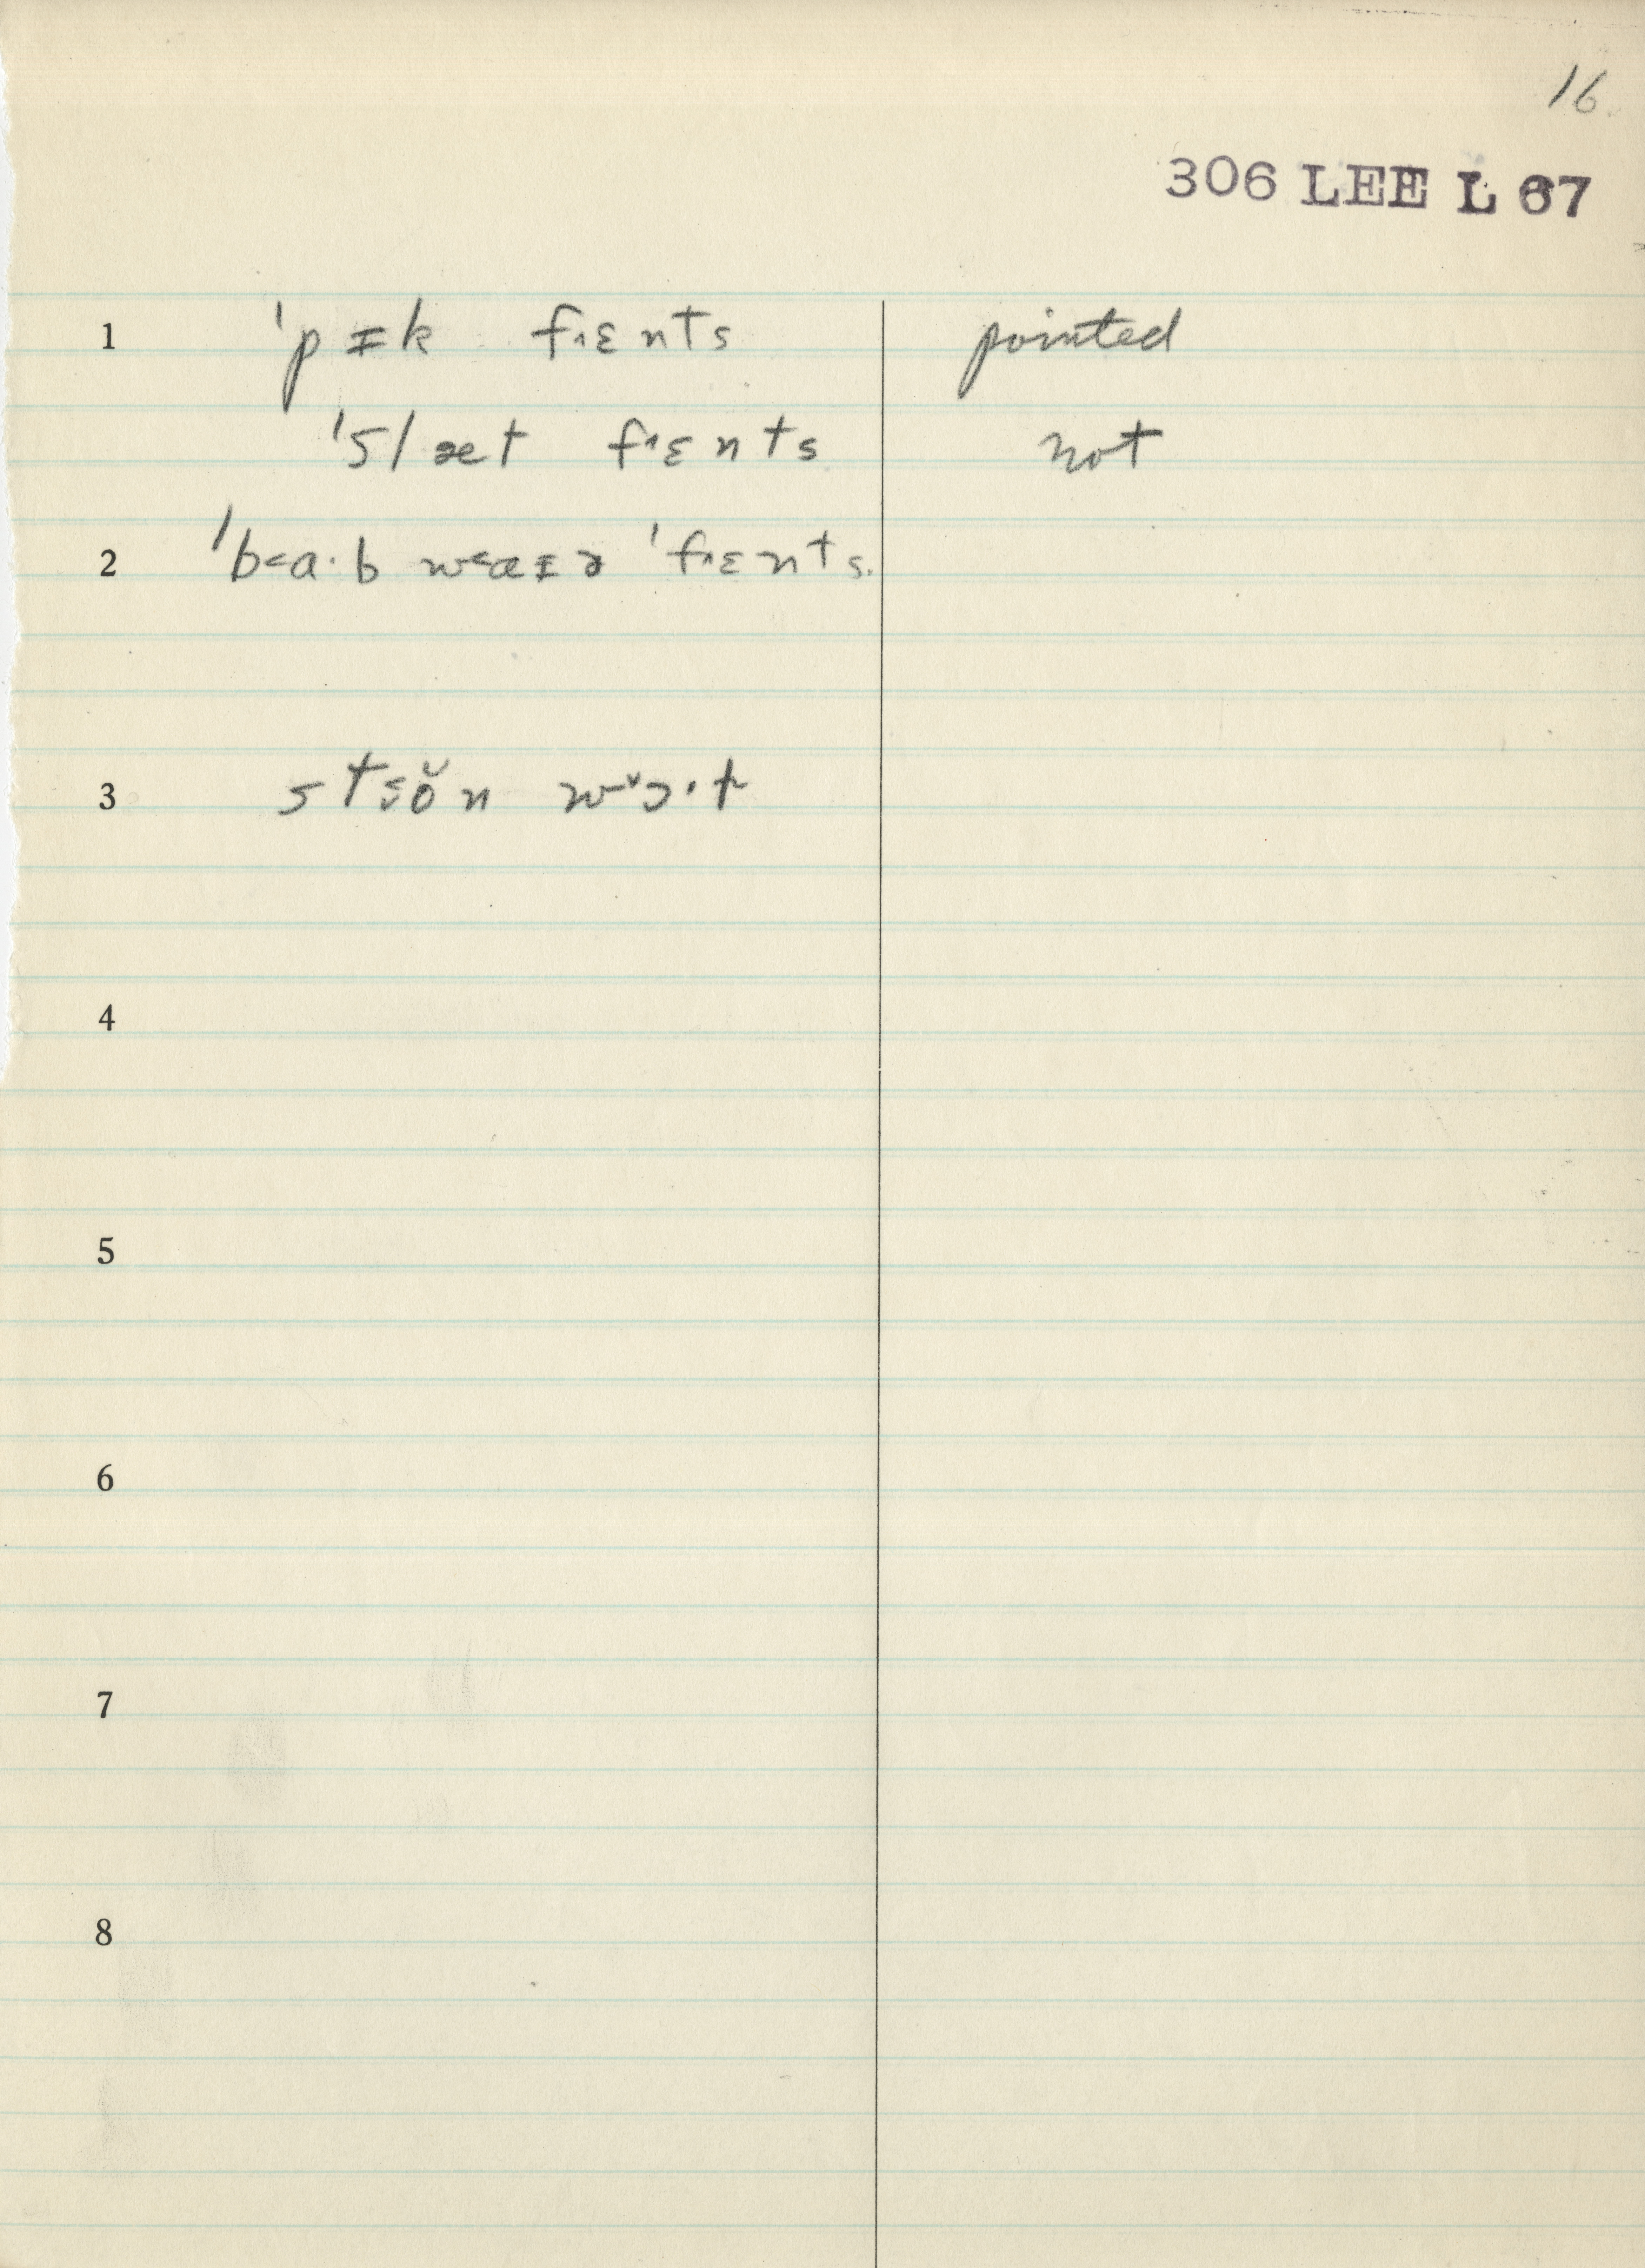 16.
306 LEE L 67
1 ˈpɪk fɪ˄ɛnts pointed
ˈslæt fɪ˄ɛnts not
2 ˈb˂a·b w˂aɪɚ ˈfɪ˄ɛnts.
3
4
5
6
7
8